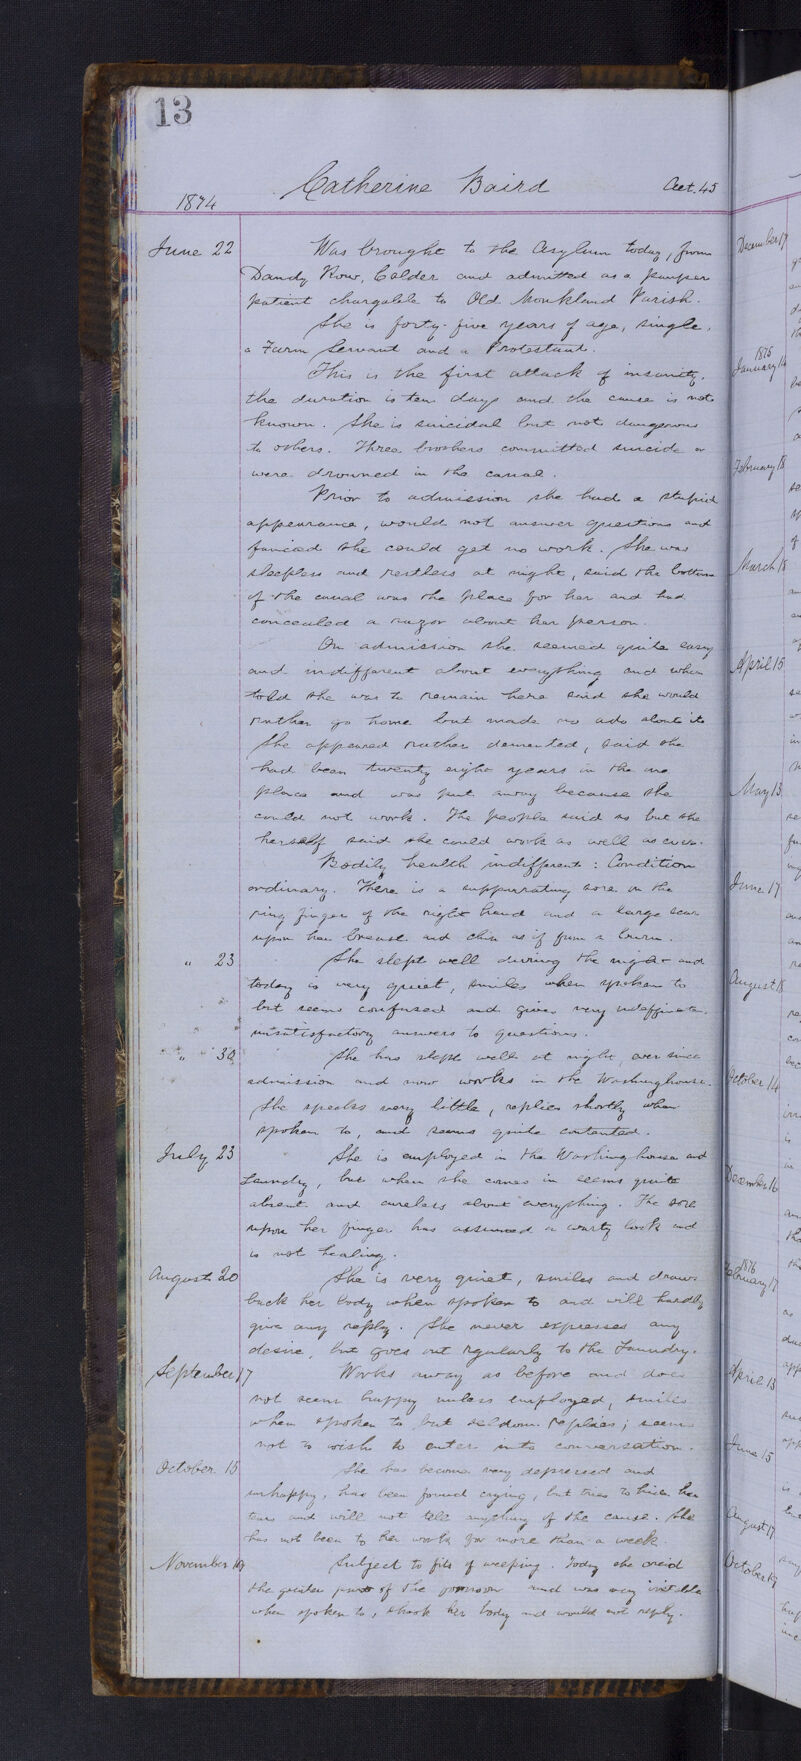 13
1874 Catherine Baird Aet. 45
June 22 Was brought to the Asylum today, from
Dandy Row, Calder and admitted as a pauper
patient chargable to Old Monkland Parish.
She is forty-five years of age, single,
a Farm Servant and a Protestant.
This is the first attack of insanity,
the duration is ten days and the cause is not
known. She is suicidal but not dangerous
to others. Three brothers committed suicide or
were drowned in the canal.
Prior to admission she had a stupid
appearance, would not answer questions and
fancied she could get no work. She was
sleepless and restless at night, said the bottom
of the canal was the place for her and had
concealed a razor about her person.
On admission she seemed quite easy
and indifferent about everything and when
told she was to remain here said she would
rather go home but made no ado about it.
She appeared rather demented, said she
had been twenty eight years in the one
place and was put away because she
could not work. The people said so but she
herself said she could work as well as ever.
Bodily health indifferent: Condition
ordinary. There is a suppurating sore on the
ring finger of the right hand and a large scar
upon her breast and chin as if from a burn.
" 23 She slept well during the night and
today is very quiet, smiles when spoken to
but seems confused and gives very indeffinate
unsatisfactory answers to questions.
" 30 She has slept well at night, ever since
admission and now works in the Washinghouse.
She speaks very little, replies shortly when
spoken to, and seems quite contented.
July 23 She is employed in the Washinghouse and
Laundry, but when she comes in seems quite
absent and careless about everything. The sore
upon her finger has assumed a warty look and
is not healing.
August 20 She is very quiet, smiles and draws
back her body when spoken to and will hardly
give any reply. She never expresses any
desire, but goes out regularly to the Laundry.
September 17 Works away as before and does
not seem happy unless employed, smiles
when spoken to but seldom replies; seems
not to wish to enter into conversation.
October 15 She has become very depressed and
unhappy, has been found crying, but tries to hide her
tears and will not tell anything of the cause. She
has not been to her work for more than a week.
November 19 Subject to fits of weeping. Today she cried
the greater part of the forenoon and was very irritable
when spoken to, shook her body and would not reply.
December 17
1875
January 14
February 18
March 18
April 15
May 13
June 17
August 18
October 14
December 16
1876
February 17
April 13
June 15
August 17
October 19